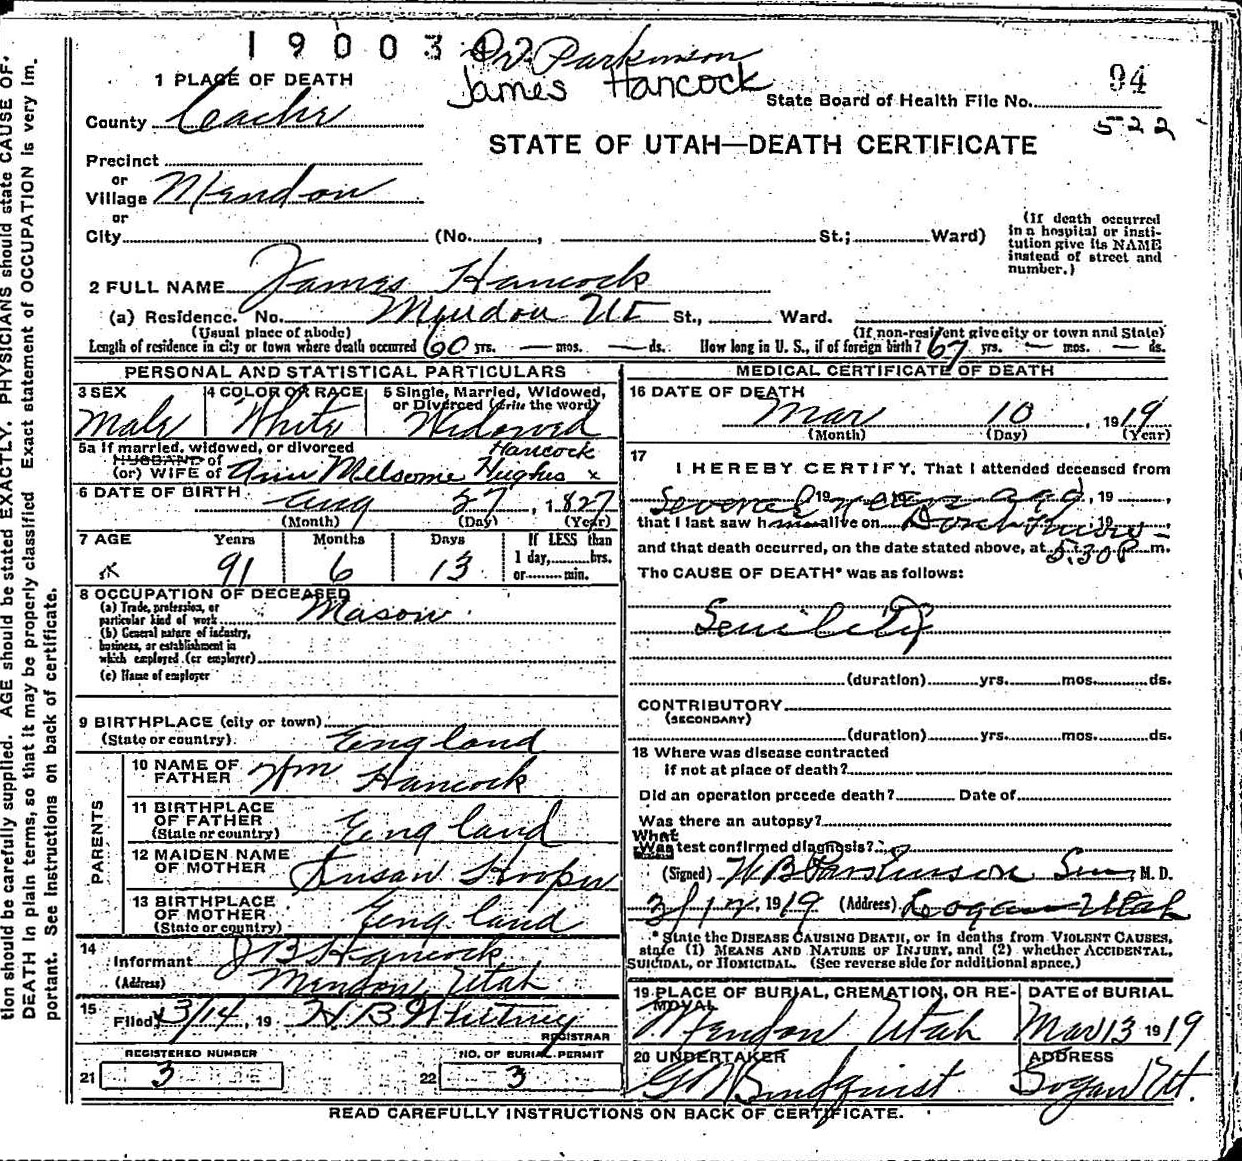 190034
Dr. Parkinson
James Hancock
94
State Board of Health File No.
522
1 PLACE OF DEATH
County Cache
STATE OF UTAH—DEATH CERTIFICATE
Precinct
or
Village Mendon
or
City (No. , St.; Ward)
(If death occurred in a hospital or insti-
tution give its NAME
instead of street and
number.)
2 FULL NAME James Hancock
(a) Residence. No. Mendon Ut St., Ward.
(Usual place of abode) (If non-resident give city or town and State)
Length of residence in city or town where death occurred 60 yrs. — mos. — ds. How long in U. S., if of foreign birth? 67 yrs. — mos. — ds.
PERSONAL AND STATISTICAL PARTICULARS
3 SEX
Male
4 COLOR OR RACE
White
5 Single, Married, Widowed,
or Divorced (write the word)
Widowed
5a If married, widowed, or divorced
HUSBAND of Hancock
(or) WIFE of Ann Melsome Hughes x
6 DATE OF BIRTH Aug 27, 1827
(Month) (Day) (Year)
7 AGE Years Months Days If LESS than
1 day, hrs.
or min.
91 6 13
8 OCCUPATION OF DECEASED
(a) Trade, profession, or
particular kind of work Mason
(b) General nature of industry,
business, or establishment in
which employed (or employer)
(c) Name of employer
9 BIRTHPLACE (city or town)
(State or country) England
PARENTS
10 NAME OF
FATHER Wm Hancock
11 BIRTHPLACE
OF FATHER
(State or country) England
12 MAIDEN NAME
OF MOTHER Susan Hooper
13 BIRTHPLACE
OF MOTHER
(State or country) England
14
Informant J B Hancock
(Address) Mendon, Utah
15
Filed 3/14, 19 H B Whitney
REGISTRAR
REGISTERED NUMBER
21 3
NO. OF BURIAL PERMIT
22 3
MEDICAL CERTIFICATE OF DEATH
16 DATE OF DEATH
Mar 10, 1919
(Month) (Day) (Year)
17
I HEREBY CERTIFY, That I attended deceased from
Several years ago, 19
that I last saw h alive on Dont know, 19
and that death occurred, on the date stated above, at 5:30P m.
The CAUSE OF DEATH* was as follows:
Senility
(duration) yrs. mos. ds.
CONTRIBUTORY
(SECONDARY)
(duration) yrs. mos. ds.
18 Where was disease contracted
if not at place of death?
Did an operation precede death? Date of
Was there an autopsy?
What
Was test confirmed diagnosis?
(Signed) W B Parkinson Sen M. D.
3/12, 1919 (Address) Logan Utah
*State the DISEASE CAUSING DEATH, or in deaths from VIOLENT CAUSES,
state (1) MEANS AND NATURE OF INJURY, and (2) whether ACCIDENTAL,
SUICIDAL, or HOMICIDAL. (See reverse side for additional space.)
19 PLACE OF BURIAL, CREMATION, OR RE-
MOVAL
Mendon Utah
DATE of BURIAL
Mar 13 1919
20 UNDERTAKER
G M Lindquist
ADDRESS
Logan Ut.
READ CAREFULLY INSTRUCTIONS ON BACK OF CERTIFICATE.
tion should be carefully supplied. AGE should be stated EXACTLY. PHYSICIANS should state CAUSE OF
DEATH in plain terms, so that it may be properly classified Exact statement of OCCUPATION is very im.
portant. See instructions on back of certificate.